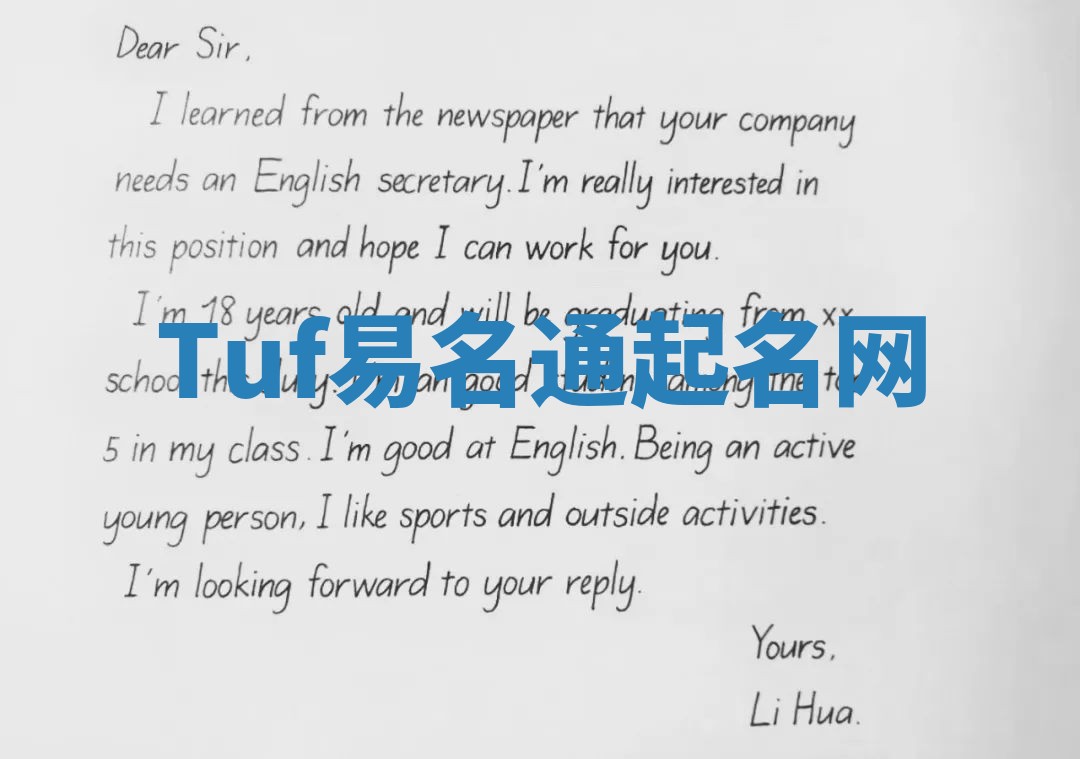 Dear Sir,
I learned from the newspaper that your company
needs an English secretary. I'm really interested in
this position and hope I can work for you.
I'm 18 years old and will be graduating from xx
Tuf易名通起名网
school this good among the
5 in my class. I'm good at English. Being an active
young person, I like sports and outside activities.
I'm looking forward to your reply.
Yours,
Li Hua.